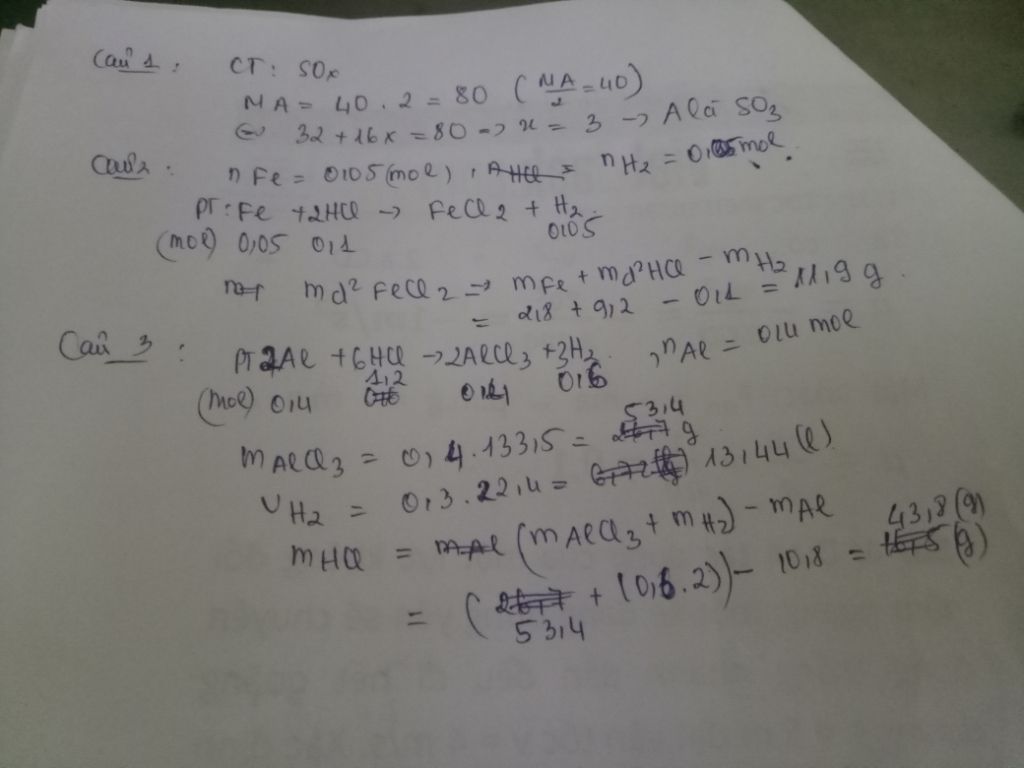 Câu 1 : CT : SOx
MA = 40 . 2 = 80 ( MA/2 = 40)
32 + 16x = 80 → x = 3 → A là SO3
Câu 2 : nFe = 0,05 (mol) , nH2 = 0,05 mol .
PT : Fe + 2HCl → FeCl2 + H2
(mol) 0,05 0,1 0,05
md² FeCl2 => mFe + md² HCl - mH2
= 2,8 + 9,2 - 0,1 = 11,9 g .
Câu 3 : PT 2Al + 6HCl → 2AlCl3 + 3H2 , nAl = 0,4 mol
(mol) 0,4 1,2 0,4 0,6
mAlCl3 = 0,4 . 133,5 = 53,4 g
VH2 = 0,3 . 22,4 = 13,44 (l)
mHCl = (mAlCl3 + mH2) - mAl
= ( 53,4 + (0,6 . 2)) - 10,8 = 43,8 (g)